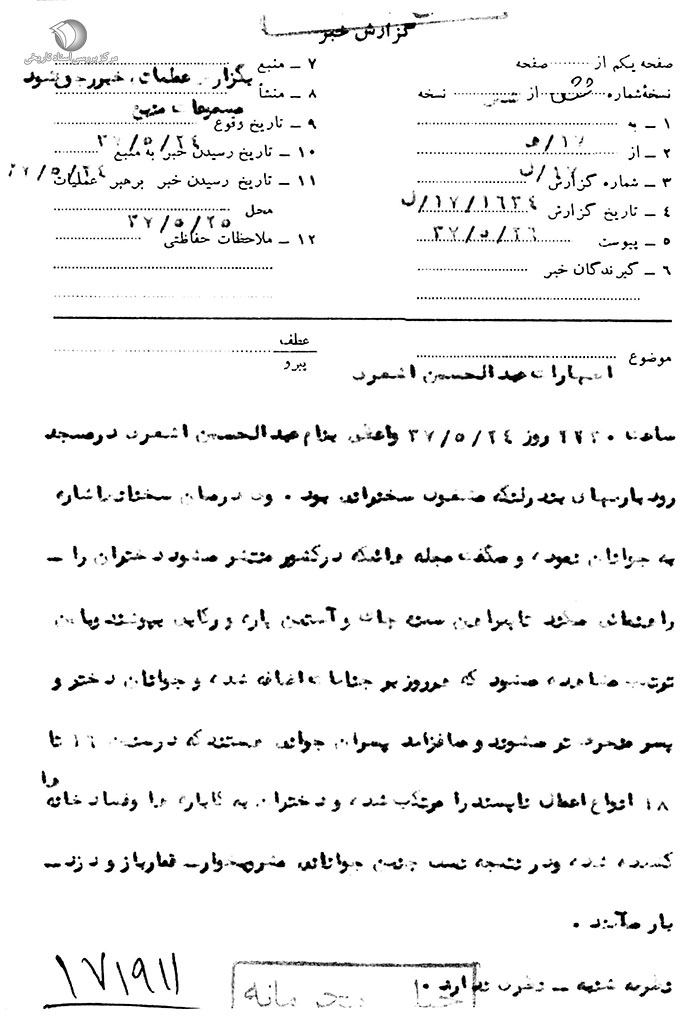 مرکز بررسی اسناد تاریخی
گزارش خبر
صفحه یکم از صفحه
نسخهٔ شماره ششم از شش نسخه
۱ ـ به
۲ ـ از ۱۷/ه
۳ ـ شماره گزارش ۱۷/ل
۴ ـ تاریخ گزارش ۱۶۳۴/۱۷/ل
۵ ـ پیوست ۳۷/۵/۲۶
۶ ـ گیرندگان خبر
۷ ـ منبع بگزارش عملیات خبر رجوع شود
۸ ـ منشأ مسموعات منبع
۹ ـ تاریخ وقوع
۱۰ ـ تاریخ رسیدن خبر به منبع ۳۷/۵/۲۴
۱۱ ـ تاریخ رسیدن خبر برهبر عملیات ۳۷/۵/۲۴
محل ۳۷/۵/۲۵
۱۲ ـ ملاحظات حفاظتی
موضوع
عطف
پیرو
اظهارات عبدالحسین اشعری
ساعت ۲۲۳۰ روز ۳۷/۵/۲۴ واعظی بنام عبدالحسین اشعری در مسجد
رودباریهای بندرلنگه مشغول سخنرانی بود . وی در میان سخنانش اشاره
به جوانان نمود، و میگفت مجله هائیکه در کشور منتشر میشود دختران را ـ
راهنمائی میکند تا پیراهن سینه چاک و آستین پاره و رکابی بپوشند و باین
ترتیب مشاهده میشود که هر روز بر جنایات اضافه شده و جوانان دختر و
پسر منحرف تر میشوند و میافزاید پسران جوانی هستند که در سنین ۱۶ تا
۱۸ انواع اعمال ناپسند را مرتکب شده و دختران به کاباره ها و فساد خانه ها
کشیده شده و در نتیجه نسب چنین جوانانی مشروبخوار ـ قمارباز و دزد ـ
بار میآیند .
نظریه شنبه ـ نظری ندارد .
۱۷۱۹۱۱
خیلی محرمانه